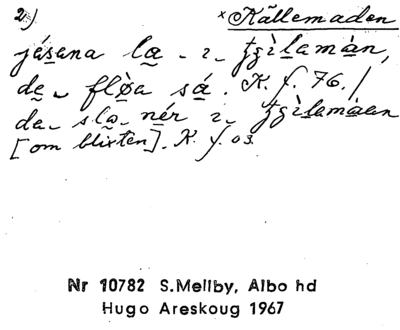 2) ˣKällemaden
jásena la - ı ʈʂìlamàn,
de - flòa sá. K. f. 76./
da- sla- nér ı- ʈʂìlamàen
[om blixten]. K. f. 03.
Nr 10782 S.Mellby, Albo hd
Hugo Areskoug 1967